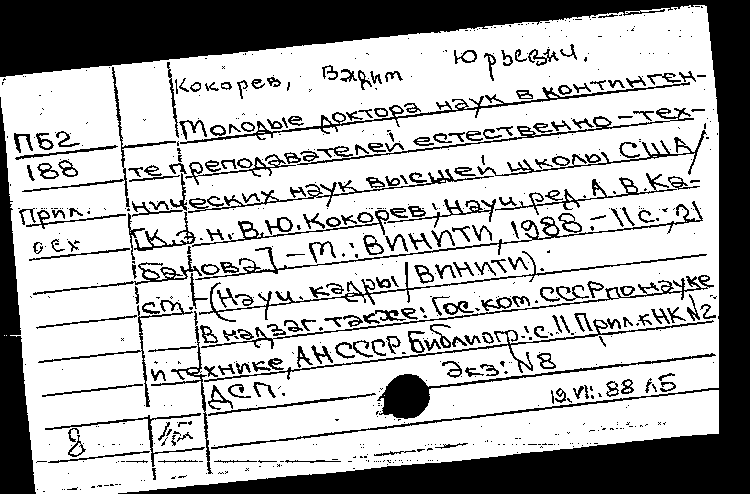 Кокорев, Вадим Юрьевич.
Молодые доктора наук в континген-
П62
188
те преподавателей естественно-тех-
нических наук высшей школы США/
Прил.
осх
[К.э.н. В.Ю.Кокорев; Науч. ред. А.В.Ка-
банова]. - М.: ВИНИТИ, 1988. - 11 с.; 21
см. - (Науч. кадры/ВИНИТИ).
В надзаг. также: Гос. ком. СССР по науке
и технике, АН СССР. Библиогр.: с. 11. Прил. к НК №2
ДСП. Экз: №8
8
19.VII.88 Л5